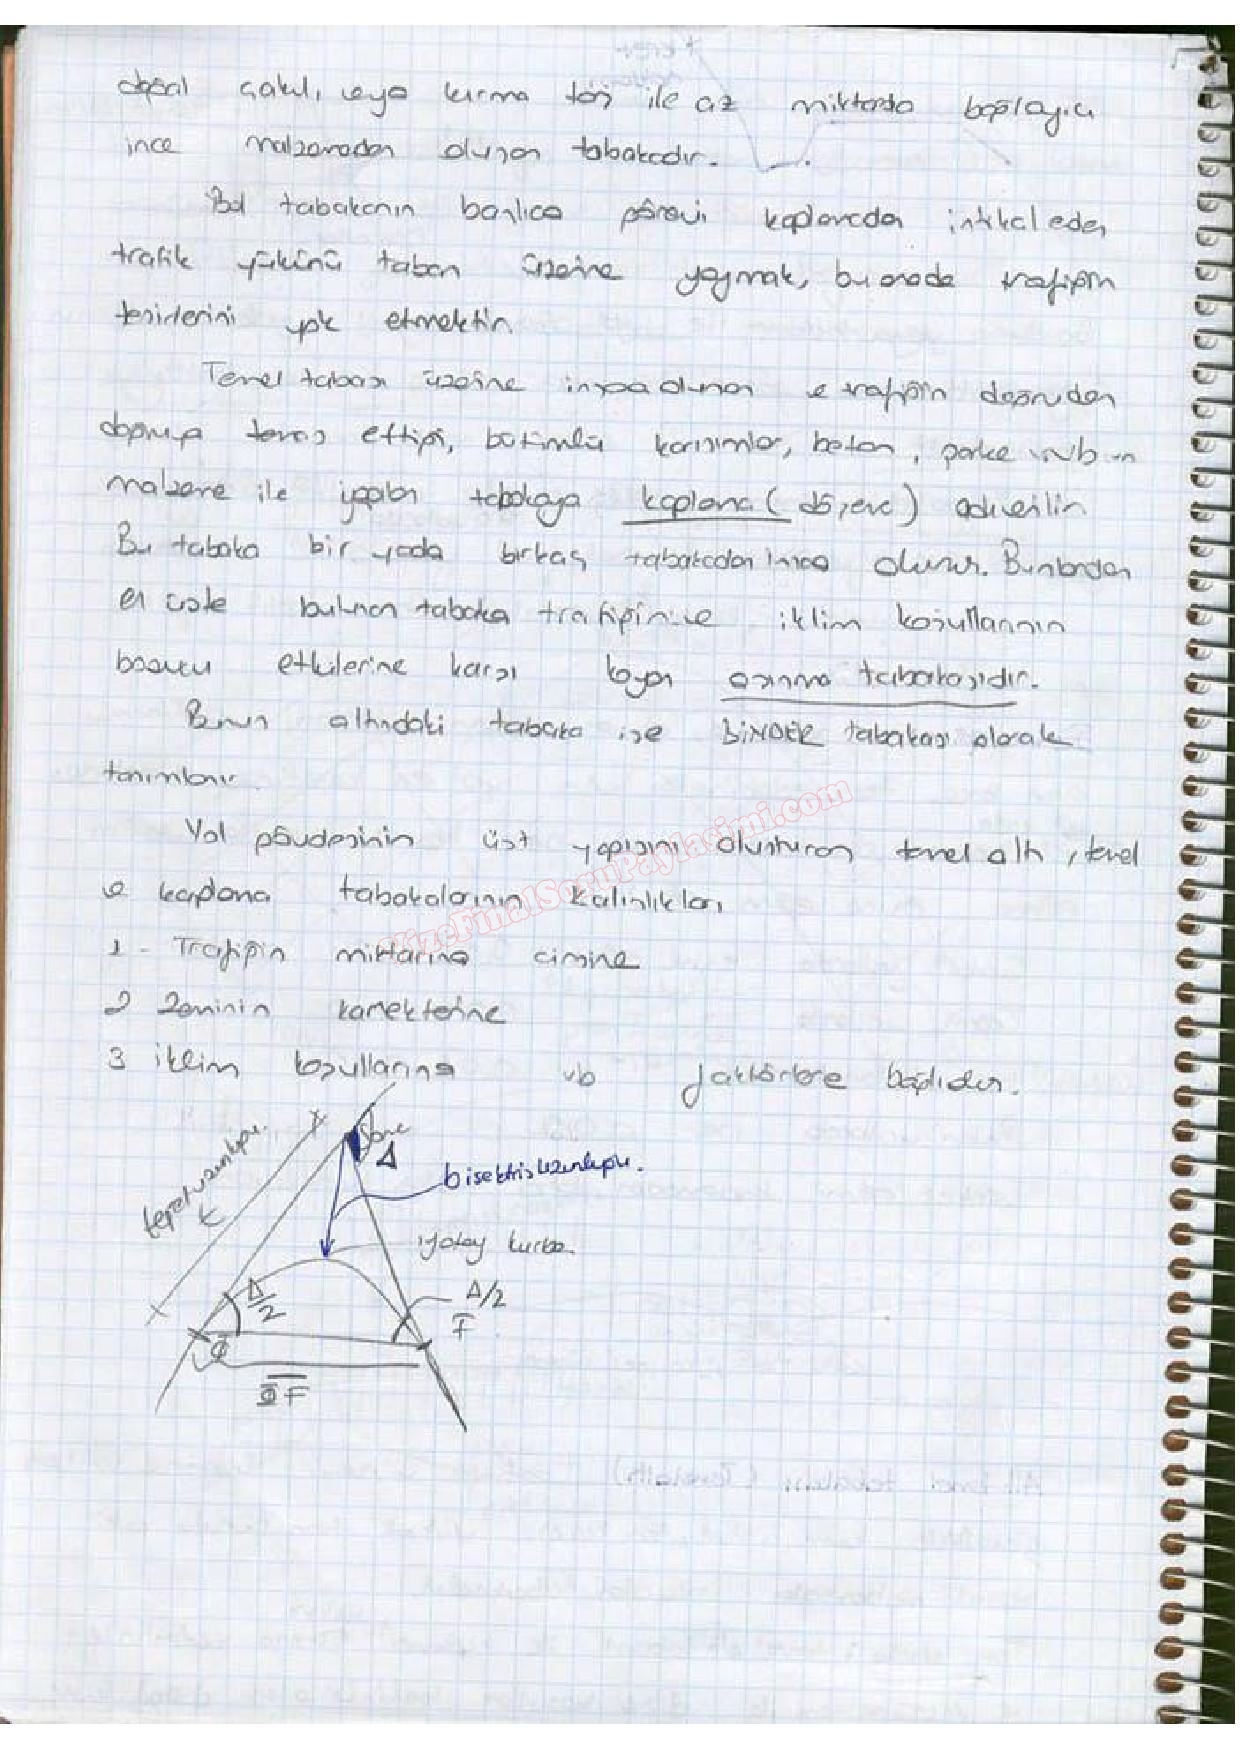 doğal çakıl, veya kırma taş ile az miktarda bağlayıcı
ince malzemeden oluşan tabakadır.
Bu tabakanın başlıca görevi kaplamadan intikal eden
trafik yükünü taban üzerine yaymak, bu arada trafiğin
tesirlerini yok etmektir.
Temel tabası üzerine inşa olunan ve trafiğin doğrudan
doğruya temas ettiği, bütümlü karışımlar, beton, parke vb
malzeme ile yapılan tabakaya kaplama (döşeme) adı verilir
Bu tabaka bir yada birkaç tabakadan inşa olunur. Bunlardan
en üste bulunan tabaka trafiğin ve iklim koşullarının
bozucu etkilerine karşı koyan aşınma tabakasıdır.
Bunun altındaki tabaka ise BİNDER tabakası olarak
tanımlanır.
Yol gövdesinin üst yapısını oluşturan temel altı, temel
ve kaplama tabakalarının kalınlıkları
1- Trafiğin miktarına cinsine
2 Zeminin karekterine
3 iklim koşullarına vb faktörlere bağlıdır.
Some
Δ
teğet uzunluğu.
t
bisektris uzunluğu.
yatay kurba
Δ/2
Δ/2
Φ
F
ΦF
VizeFinalSoruPaylasimi.com